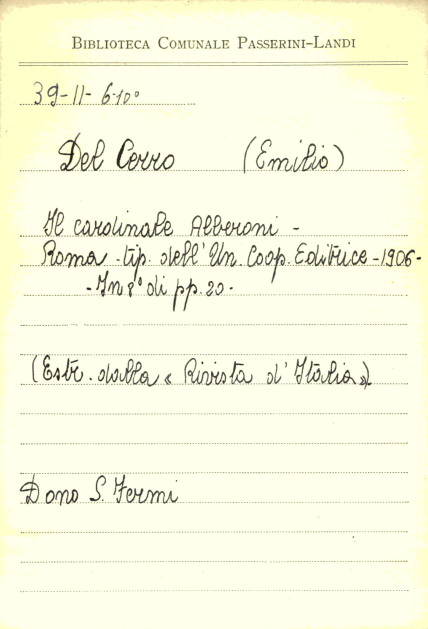 BIBLIOTECA COMUNALE PASSERINI-LANDI
39-11-6-10°
Del Cerro (Emilio)
Il cardinale Alberoni -
Roma - tip. dell'Un. Coop. Editrice - 1906 -
- In 8° di pp. 20 -
(Estr. dalla « Rivista d'Italia»)
Dono S. Fermi